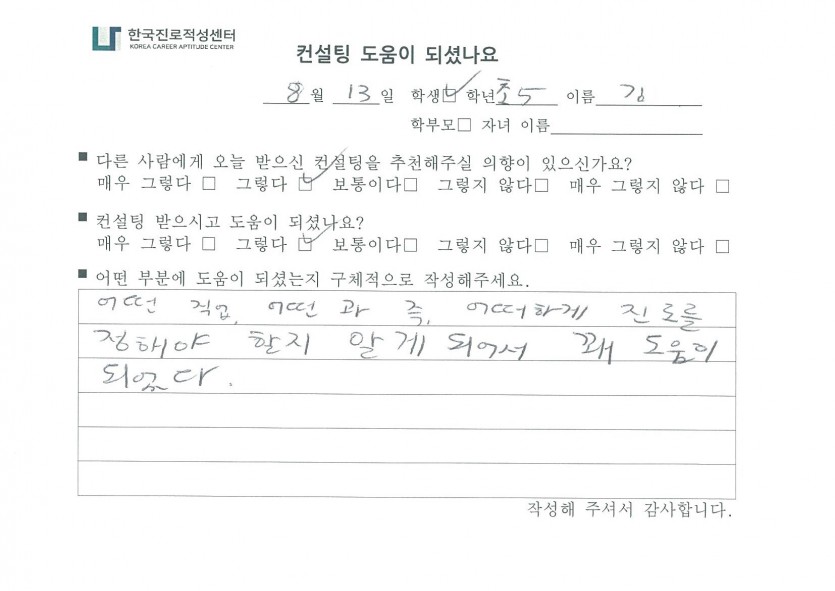 한국진로적성센터
KOREA CAREER APTITUDE CENTER
컨설팅 도움이 되셨나요
8월 13일 학생☑ 학년 초5 이름 김
학부모□ 자녀 이름
■ 다른 사람에게 오늘 받으신 컨설팅을 추천해주실 의향이 있으신가요?
매우 그렇다 □ 그렇다 ☑ 보통이다□ 그렇지 않다□ 매우 그렇지 않다 □
■ 컨설팅 받으시고 도움이 되셨나요?
매우 그렇다 □ 그렇다 ☑ 보통이다□ 그렇지 않다□ 매우 그렇지 않다 □
■ 어떤 부분에 도움이 되셨는지 구체적으로 작성해주세요.
어떤 직업, 어떤 과 즉, 어떠하게 진로를
정해야 할지 알게 되어서 꽤 도움이
되었다.
작성해 주셔서 감사합니다.